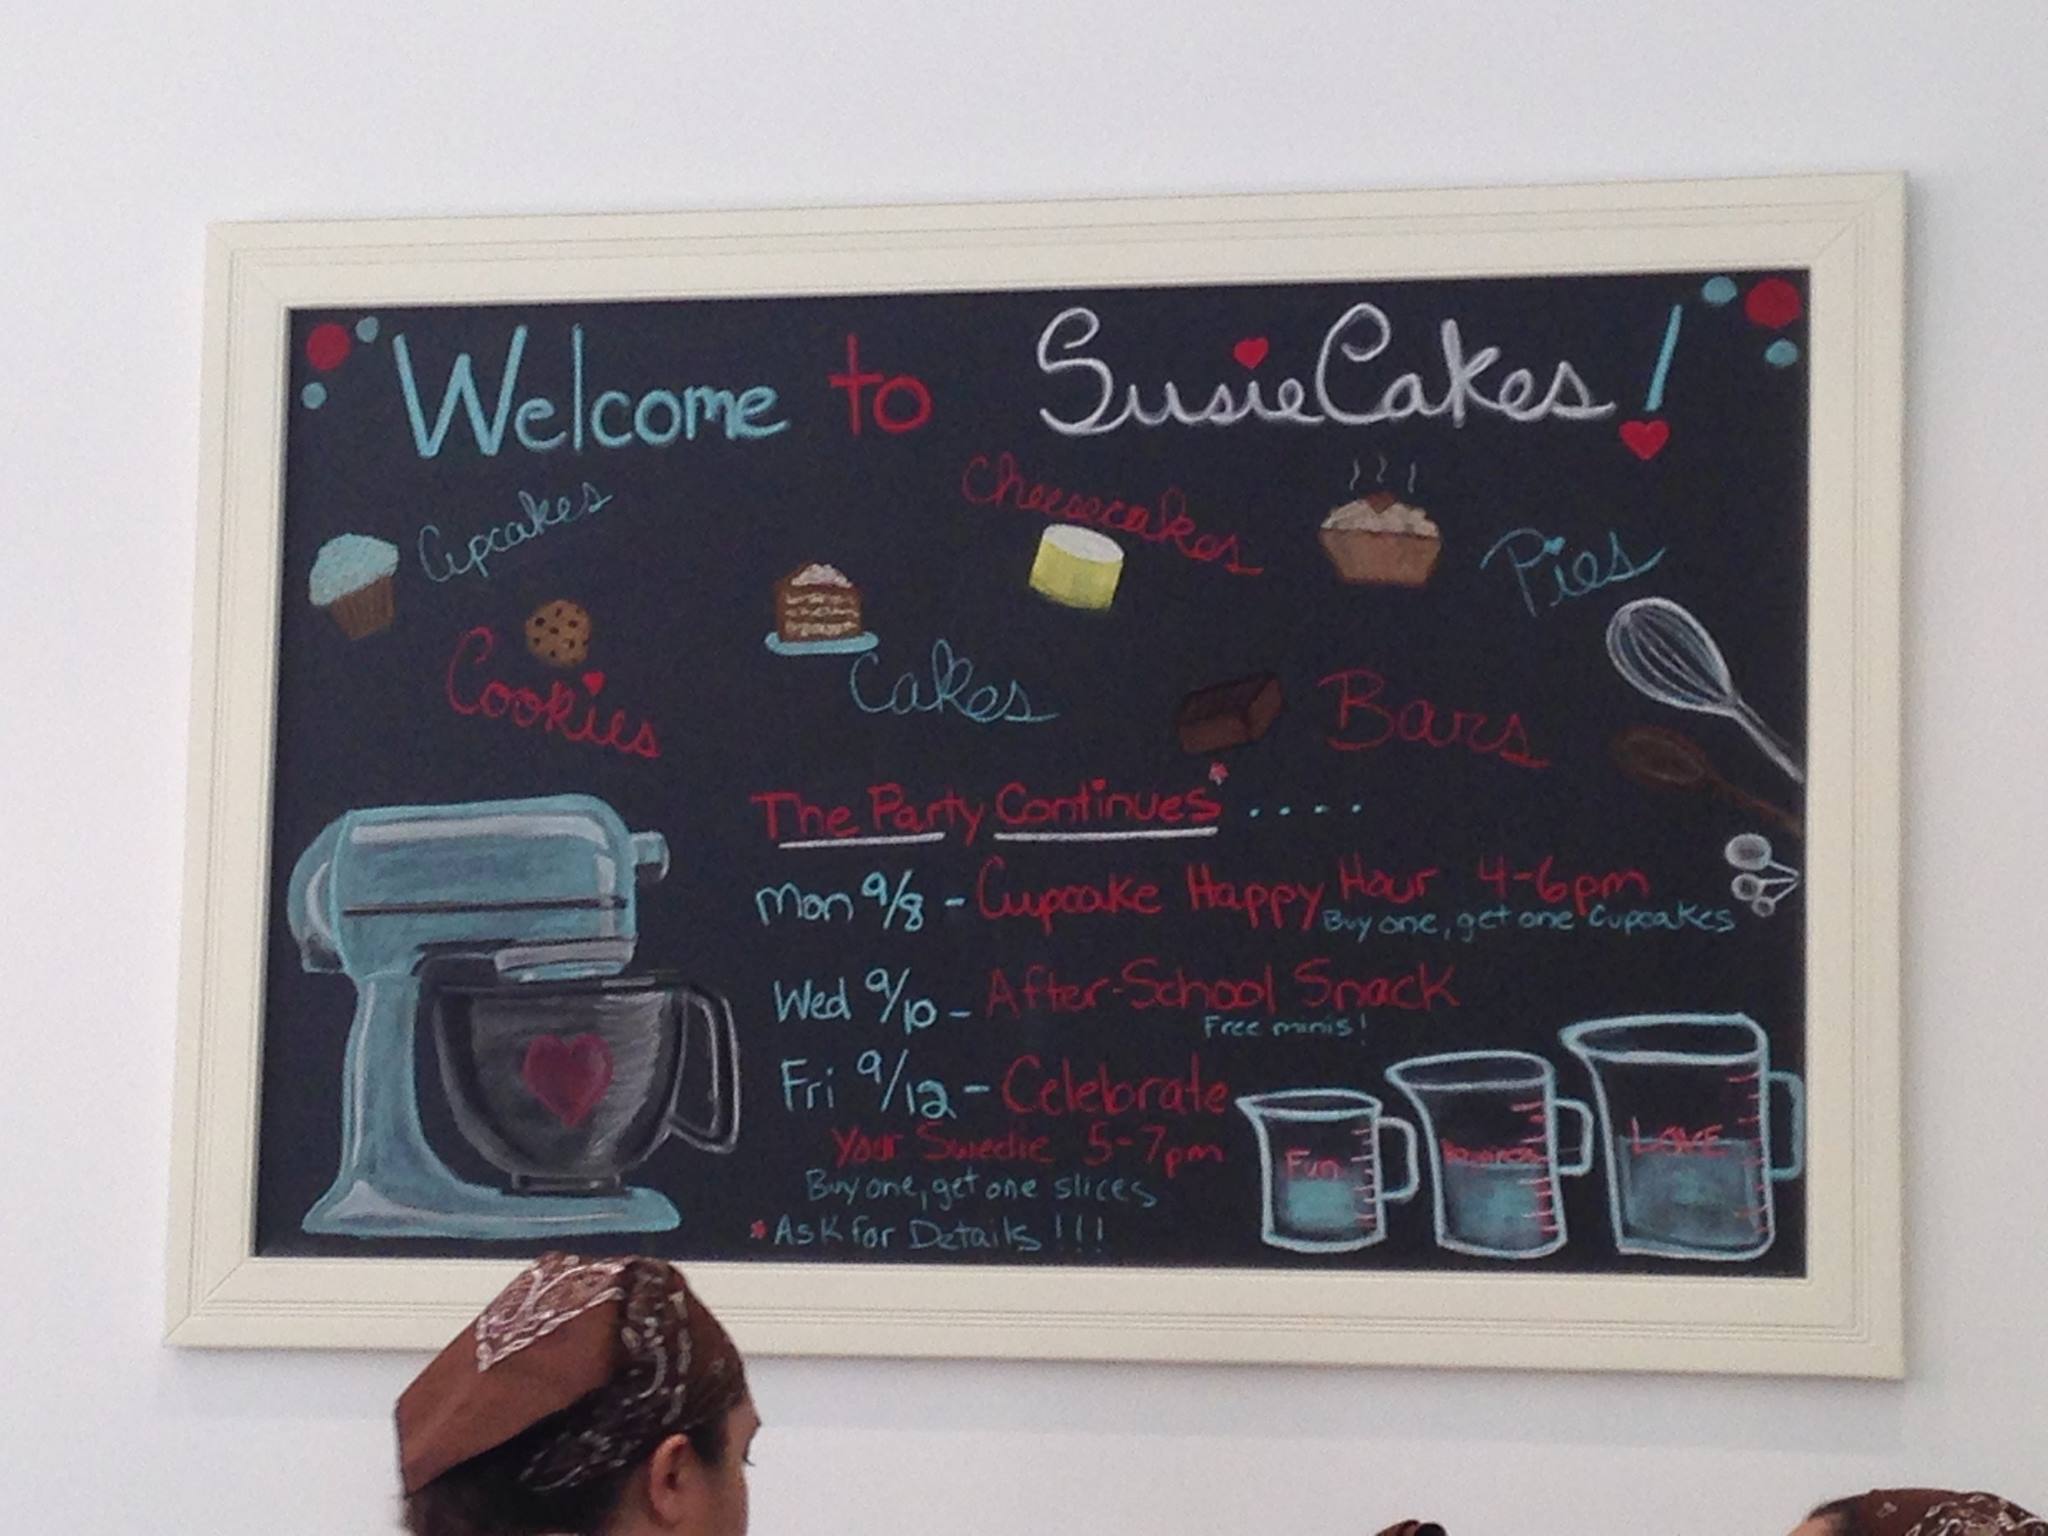 Welcome to SusieCakes!
Cupcakes
Cheesecakes
Pies
Cookies
Cakes
Bars
The Party Continues* ....
Mon 9/8 - Cupcake Happy Hour 4-6pm
Buy one, get one Cupcakes
Wed 9/10 - After-School Snack
Free minis!
Fri 9/12 - Celebrate
Your Sweetie 5-7pm
Buy one, get one slices
*Ask for Details!!!
Fun
LOVE